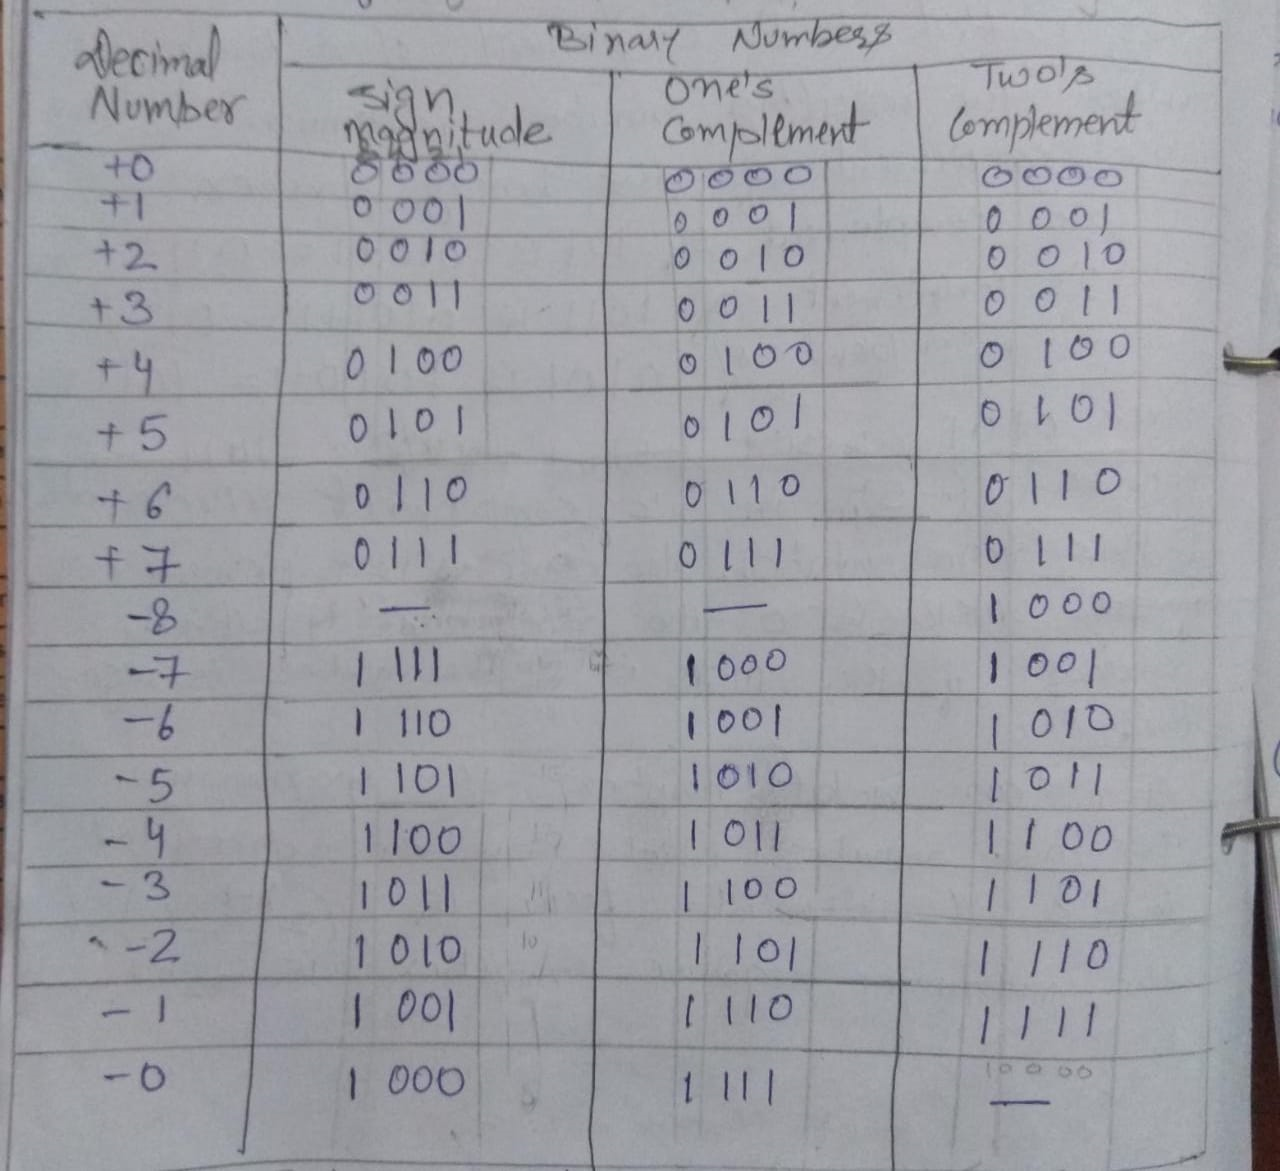 Binary Numbers
Decimal Number
Sign magnitude
One's Complement
Two's Complement
+0 0000 0000 0000
+1 0001 0001 0001
+2 0010 0010 0010
+3 0011 0011 0011
+4 0100 0100 0100
+5 0101 0101 0101
+6 0110 0110 0110
+7 0111 0111 0111
-8 — — 1000
-7 1111 1000 1001
-6 1110 1001 1010
-5 1101 1010 1011
-4 1100 1011 1100
-3 1011 1100 1101
-2 1010 1101 1110
-1 1001 1110 1111
10000
-0 1000 1111 —